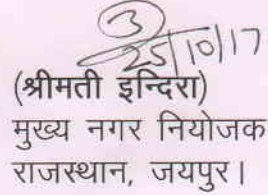 3
25/10/17
(श्रीमती इन्दिरा)
मुख्य नगर नियोजक
राजस्थान, जयपुर।